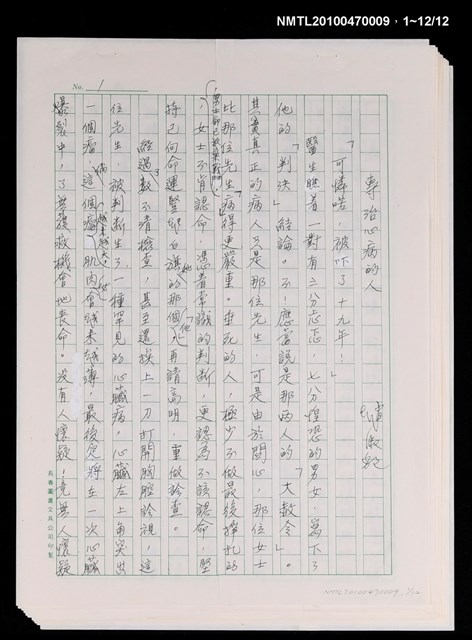 NMTL20100470009，1~12/12
No. 1
專治心病的人
趙淑敏
「可憐喏，被吓了十九年！」
醫生瞧着一對有三分忐忑，七分惶恐的男女，寫下了
他的「判決」結論。不！應當說是那兩人的「大赦令」。
其實真正的病人只是那位先生，可是由於關心，那位女士
比那位先生病得更嚴重。垂死的人，極少不做最後掙扎的
，女士不肯認命，憑着常識的判斷，更認為不該認命，堅
持已向命運豎起白旗的那個他再請高明，重做診查。
經過數不清檢查，甚至還挨上一刀打開胸腔診視，這
位先生，被判斷生了一種罕見的心臟病，心臟左上角突出
一個瘤，這個瘤越來越大，肌肉會越來越薄，最後定將在一次心臟
爆裂中，了無發救機會地喪命。沒有人懷疑，竟無人懷疑
長春圖畫文具公司印製
NMTL20100470009, 1/12